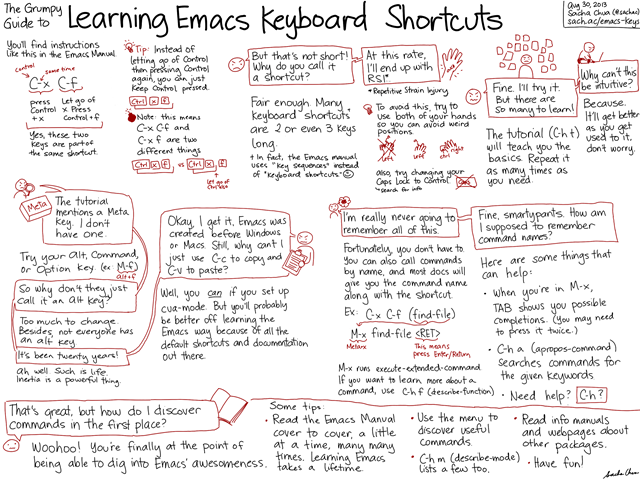 The Grumpy
Guide to
Learning Emacs Keyboard Shortcuts
Aug 30, 2013
Sacha Chua (@sachac)
sach.ac/emacs-keys
You'll find instructions
like this in the Emacs Manual
control
same time
C-x C-f
press Let go of
Control x Press
+ x Control + f
Yes, these two
keys are part of
the same shortcut.
Tip: Instead of
letting go of Control
then pressing Control
again, you can just
keep Control pressed.
Ctrl x f
Note: this means
C-x C-f and
C-x f are two
different things
Ctrl x f vs Ctrl x f
let go of
But that's not short!
Why do you call it
a shortcut?
At this rate,
I'll end up with
RSI*
*Repetitive Strain Injury
Fair enough. Many
keyboard shortcuts
are 2 or even 3 keys
long.
+ In fact, the Emacs manual
uses "key sequences" instead
of "keyboard shortcuts."
To avoid this, try to
use both of your hands
so you can avoid weird
positions.
left
left
right
also, try changing your
Caps Lock to Control
search for info
Fine. I'll try it.
But there are
so many to learn!
Why can't this
be intuitive?
Because.
It'll get better
as you get
used to it,
don't worry.
The tutorial (C-h t)
will teach you the
basics. Repeat it
as many times as
you need.
Meta
The tutorial
mentions a Meta
key. I don't
have one.
Try your Alt, Command,
or Option key. (ex: M-f)
alt+f
So why don't they just
call it an Alt key?
Too much to change.
Besides, not everyone has
an alt key.
It's been twenty years!
Ah, well. Such is life.
Inertia is a powerful thing.
Okay, I get it, Emacs was
created before Windows
or Macs. Still, why can't I
just use C-c to copy and
C-v to paste?
Well, you can if you set up
cua-mode. But you'll probably
be better off learning the
Emacs way because of all the
default shortcuts and documentation
out there.
I'm really never going to
remember all of this.
Fortunately, you don't have to.
You can also call commands
by name, and most docs will
give you the command name
along with the shortcut.
Ex: C-x C-f (find-file)
M-x find-file <RET>
Meta+x This means
press Enter/Return
M-x runs execute-extended-command
If you want to learn more about a
command, use C-h f (describe-function)
Fine, smartypants. How am
I supposed to remember
command names?
Here are some things that
can help:
• When you're in M-x,
TAB shows you possible
completions. (You may need
to press it twice.)
• C-h a (apropos-command)
searches commands for
the given keywords
• Need help? C-h ?
That's great, but how do I discover
commands in the first place?
Woohoo! You're finally at the point of
being able to dig into Emacs' awesomeness.
Some tips:
• Read the Emacs Manual
cover to cover, a little
at a time, many many
times. Learning Emacs
takes a lifetime.
• Use the menu to
discover useful
commands.
• C-h m (describe-mode)
lists a few too.
• Read info manuals
and webpages about
other packages.
• Have fun!
Sacha Chua